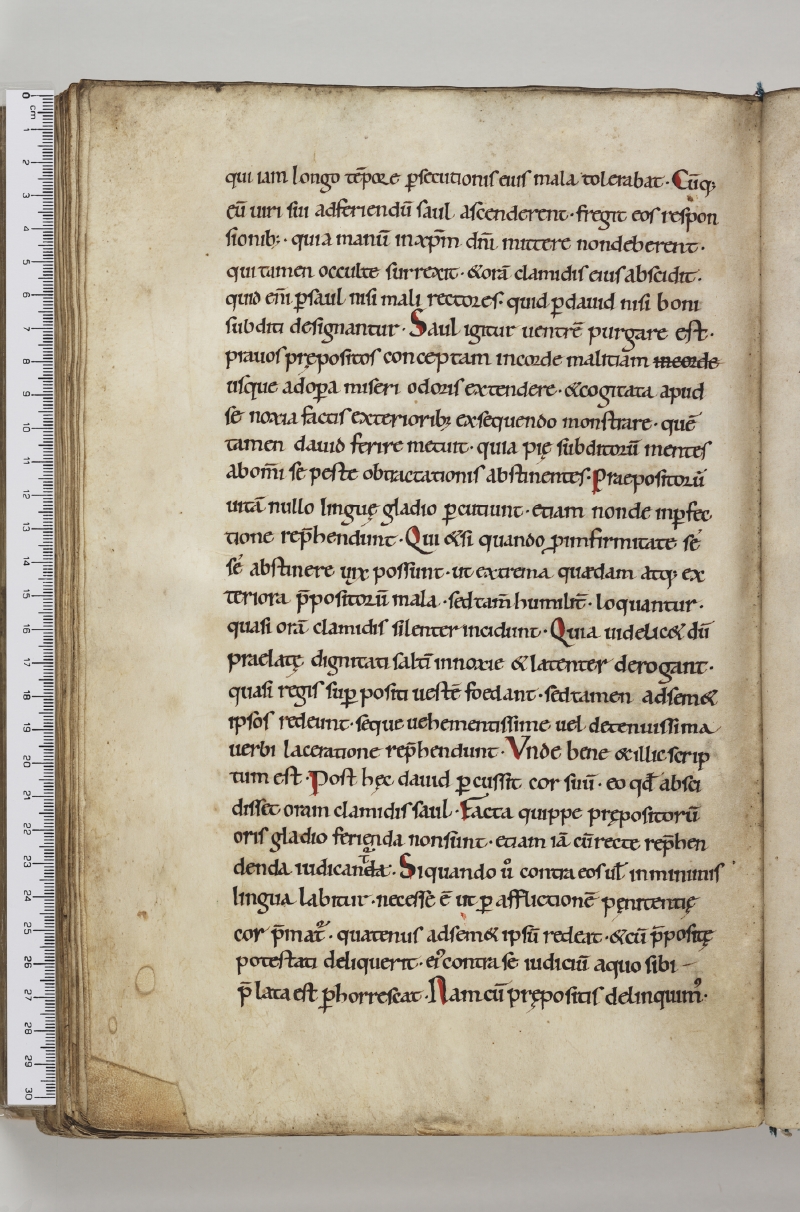 qui iam longo tēpore ꝑsecutionis eius mala tolerabat· Cūq;
eū uiri sui adferiendū saul ascenderent· fregit eos respon
sionib;· quia manū inxp̄m dn̄i mittere nondeberent·
qui tamen occulte surrexit· &orā clamidis eius abscidit·
quid en̄i ꝑsaul nisi mali rectores· quid ꝑdauid nisi boni
subditi designantur· Saul igitur uentrē purgare est·
prauos prępositos conceptam incorde malitiam incorde
usque adopa miseri odoris extendere· &cogitata apud
sé noxia factis exteriorib; exsequendo monstrare· quē
tamen dauid ferire metuit· quia pię subditorū mentes
abom̄i se peste obtractationis abstinentes· Praepositorū
uitā nullo linguę gladio ꝑcutiunt· etiam nonde inꝑfec
tione rep̄hendunt· Qui &si quando ꝓinfirmitate sé
sé abstinere uix possunt· ut extrema quædam atq; ex
teriora p̄positorū mala· sedtam̄ humilit̄· loquantur·
quasi orā clamidis silenter incidunt· Quia uidelic& dū
praelatę dignitati saltī innoxie & latenter derogant·
quasi regis suꝑ positi uestē foedant· sedtamen adsem&
ipsos redeunt· seque uehementissime uel detenuissima
uerbi laceratione rep̄hendunt· Vnde bene &illic scrip
tum est· Post hęc dauid ꝑcussit cor suū· eo qđ absci
disset oram clamidis saul· Facta quippe prępositorū
oris gladio ferienda nonsunt· etiam iā cū recte rep̄hen
denda iudicanda· Siquando ů contra eos uł inminimis
lingua labitur· necessè ē ut ꝑ afflictionē pęnitentię
cor p̄mat̉· quatenus adsem& ipsū redeat· &cū p̄positę
potestati deliquerit· ei᾽ contra se iudiciū aquo sibi
p̄lata est ꝑhorrescat· Nam cū prępositis delinquim᾽·